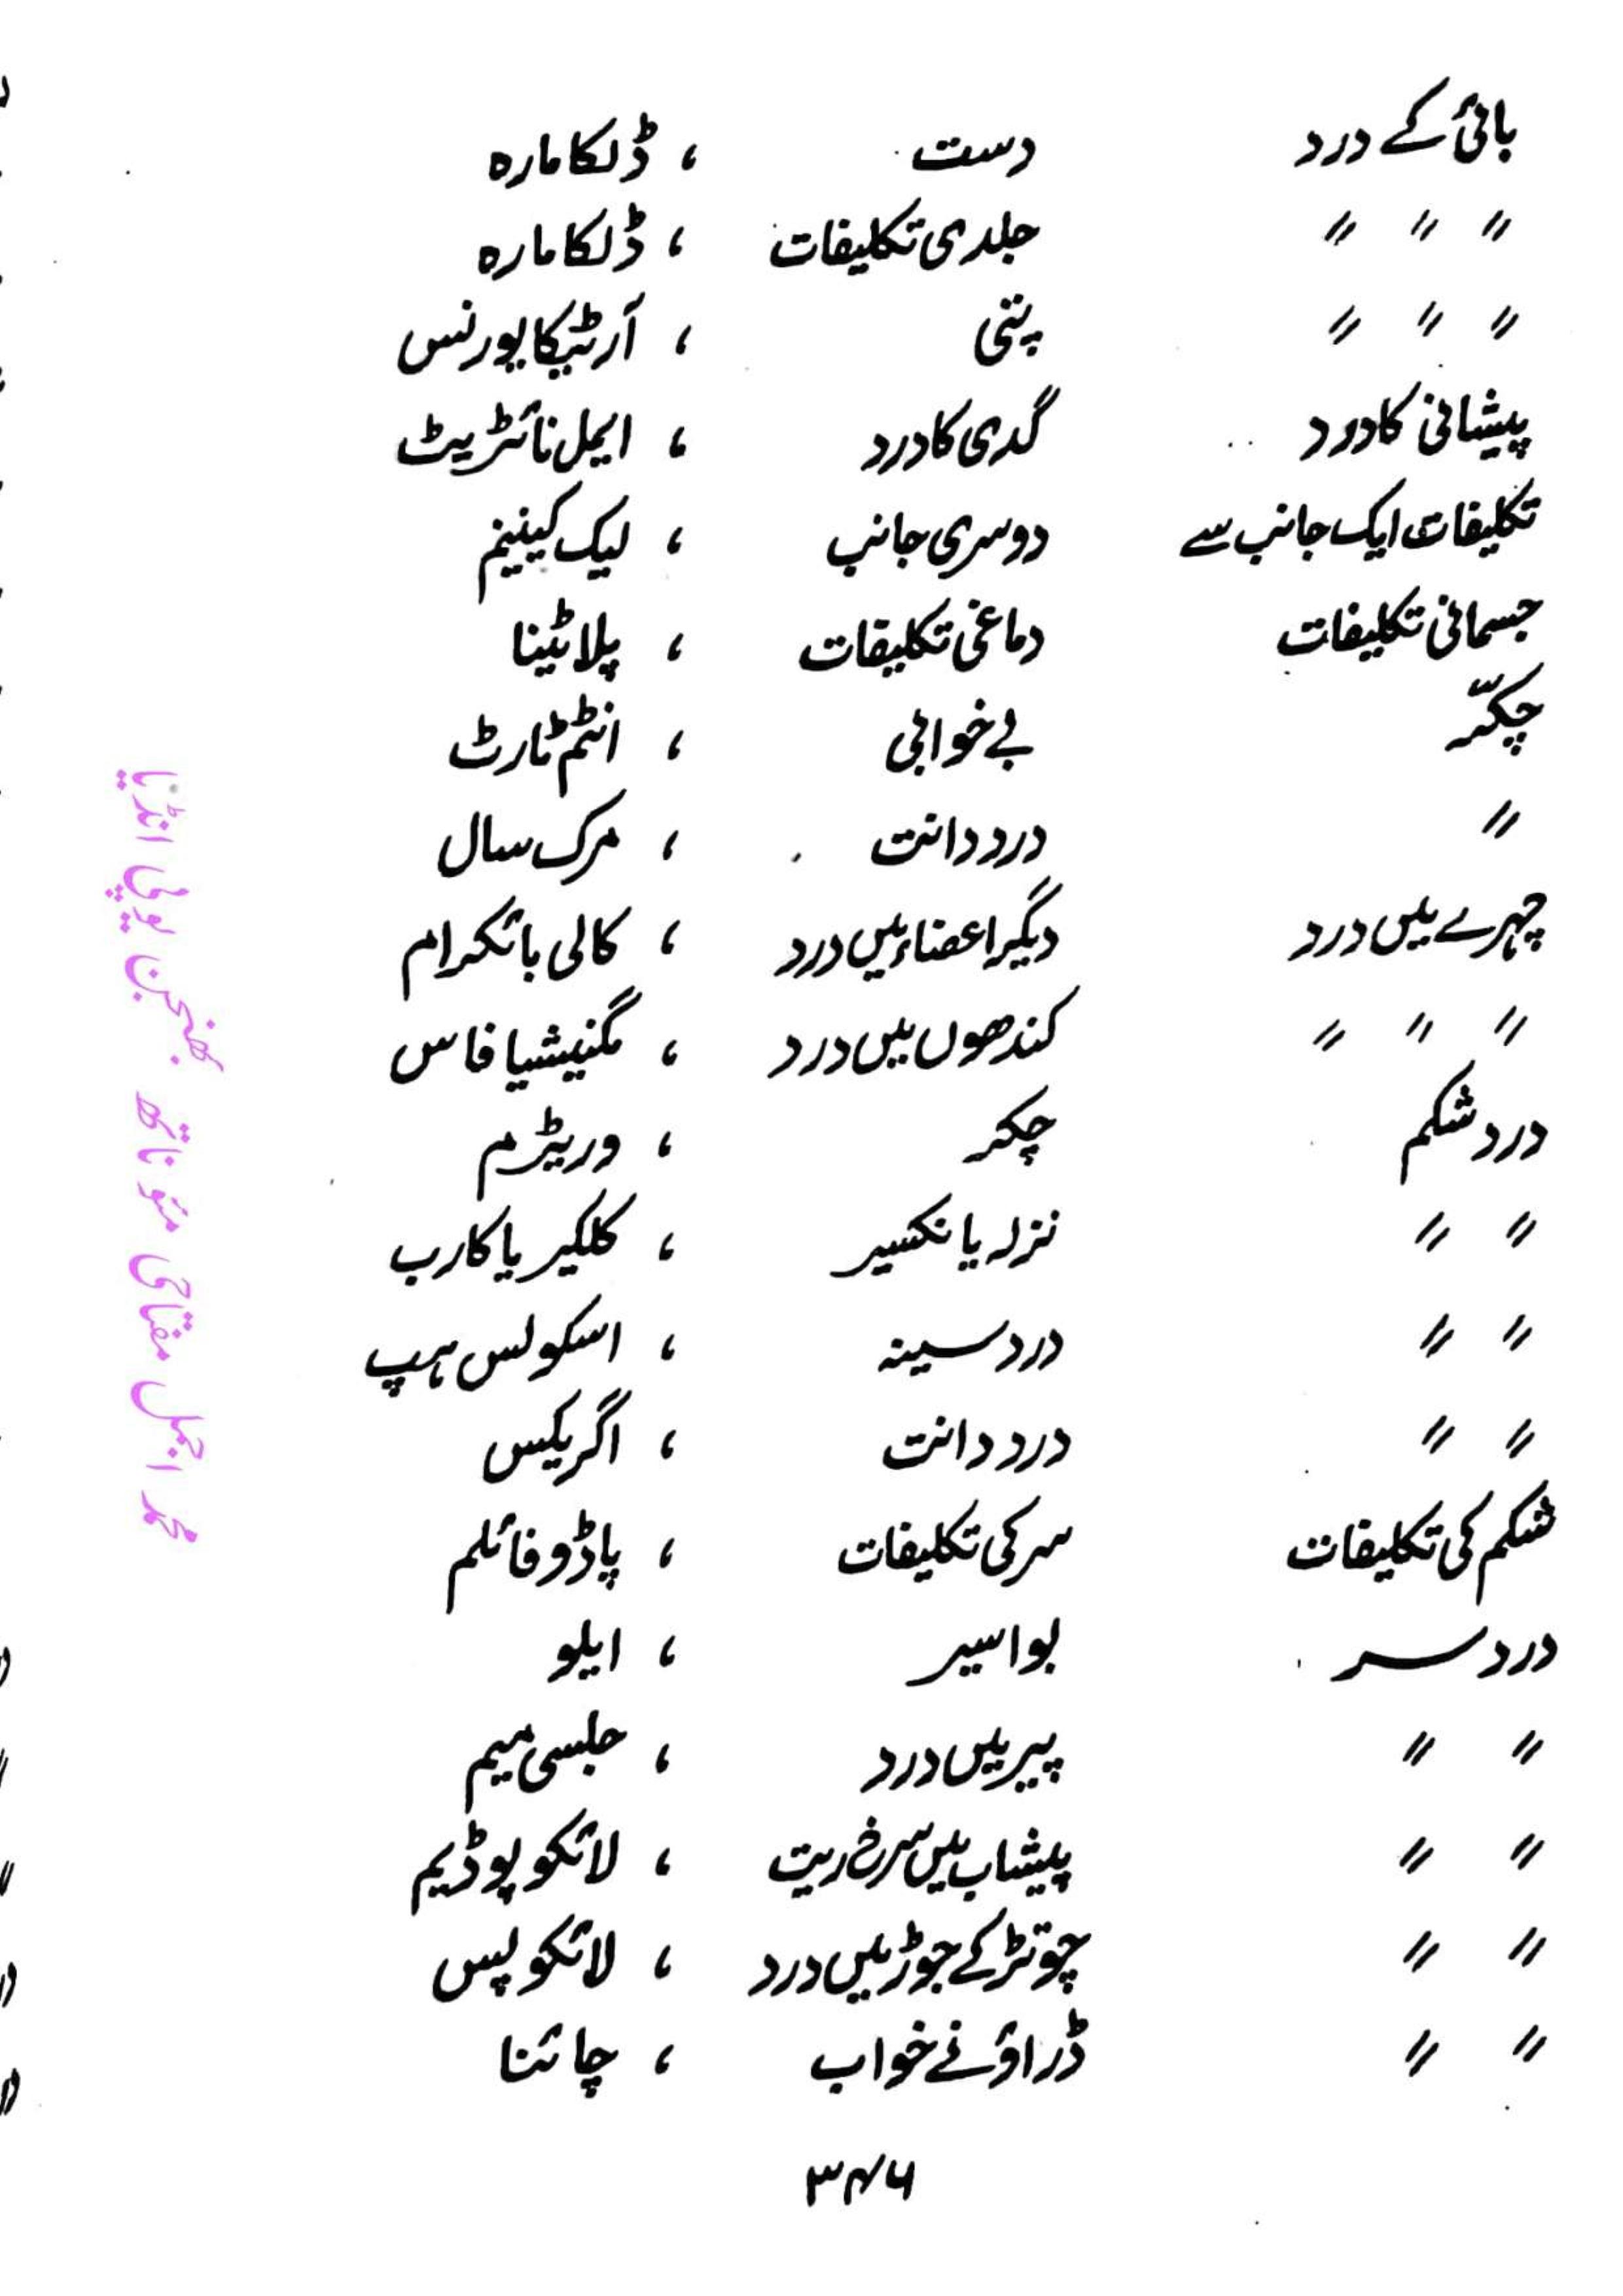 بائی کے درد دست ، ڈلکامارہ
〃 〃 〃 جلدی تکلیفات ، ڈلکامارہ
〃 〃 〃 پتی ، آرٹیکایورنس
پیشانی کا درد گدی کا درد ، ایمل نائٹریٹ
تکلیفات ایک جانب سے دوسری جانب ، لیک کینینم
جسمانی تکلیفات دماغی تکلیفات ، پلاٹینا
چکّر بے خوابی ، انٹم ٹارٹ
〃 درد دانت ، مرک سال
چہرے میں درد دیگر اعضاء میں درد ، کالی بائکرام
〃 〃 〃 کندھوں میں درد ، مگنیشیا فاس
درد شکم چکر ، وریٹرم
〃 〃 نزلہ یا نکسیر ، کلکیریا کارب
〃 〃 درد سینہ ، اسکولس ہپ
〃 〃 درد دانت ، اگریکس
شکم کی تکلیفات سر کی تکلیفات ، پاڈوفائلم
درد سر بواسیر ، ایلو
〃 〃 پیر میں درد ، جلسی میم
〃 〃 پیشاب میں سرخ ریت ، لائکوپوڈیم
〃 〃 چوتڑ کے جوڑ میں درد ، لائکوپس
〃 〃 ڈراؤنے خواب ، چائنا
۳۴۶
محمد اجمل مفتاحی مئو ناتھ بھنجن یوپی انڈیا